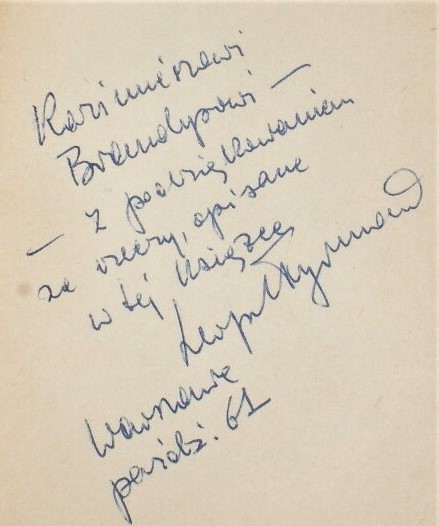 Kazimierzowi
Brandysowi —
— z podziękowaniem
za rzeczy, opisane
w tej książce,
Leopold Tyrmand
Warszawa
paźdź. 61